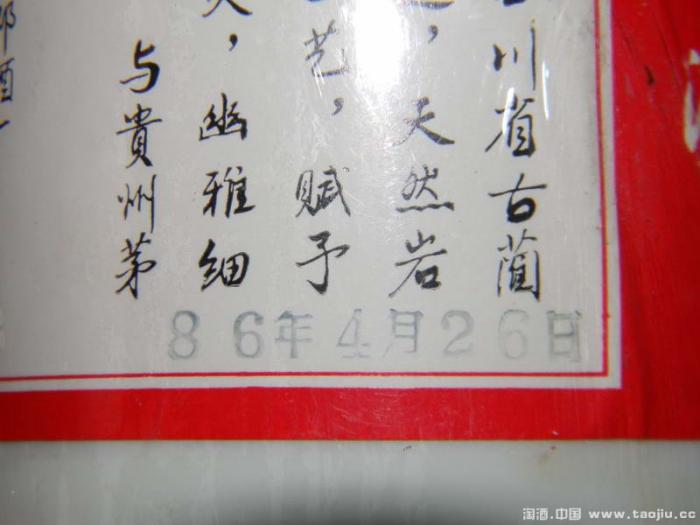 川省古蔺
，天然岩
艺，赋予
，幽雅细
与貴州茅
酒
86年4月26日
淘酒.中国 www.taojiu.cc